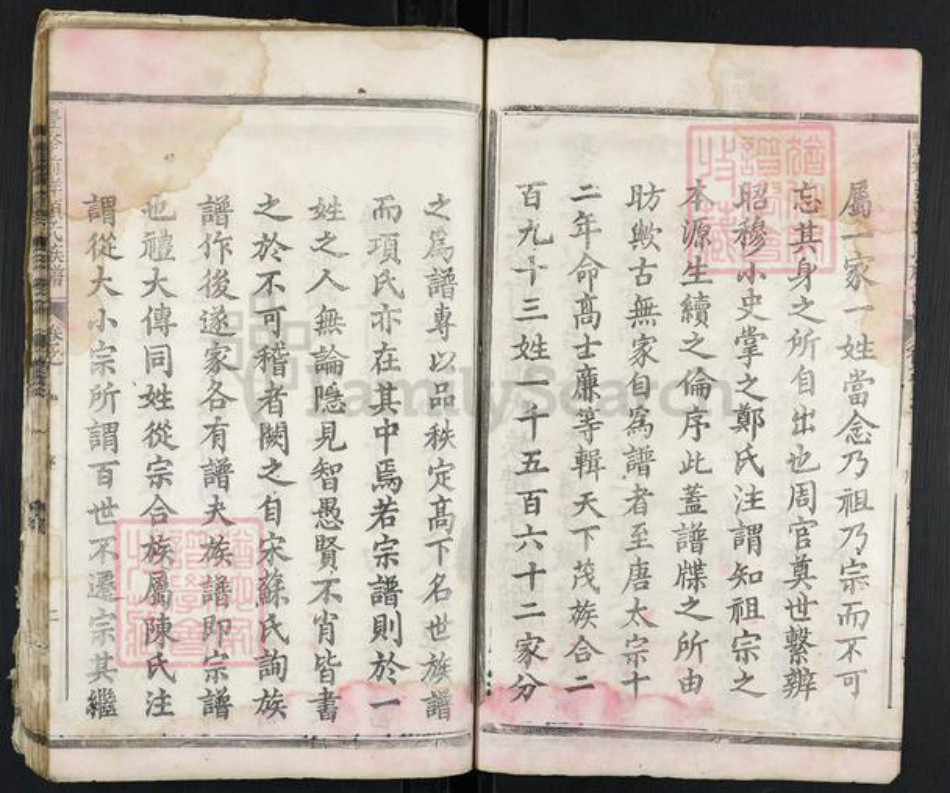 屬一家一姓當念乃祖乃宗而不可
忘其身之所自出也周官奠世繫辨
昭穆小史掌之鄭氏注謂知祖宗之
本源生續之倫序此蓋譜牒之所由
昉歟古無家自爲譜者至唐太宗十
二年命高士廉等輯天下茂族合二
百九十三姓一千五百六十二家分
之爲譜專以品秩定高下名世族譜
而項氏亦在其中焉若宗譜則於一
姓之人無論隱見智愚賢不肖皆書
之於不可稽者闕之自宋蘇氏詢族
譜作後遂家各有譜夫族譜即宗譜
也禮大傳同姓從宗合族屬陳氏注
謂從大小宗所謂百世不遷宗其繼
項氏族譜
卷之
FamilySearch